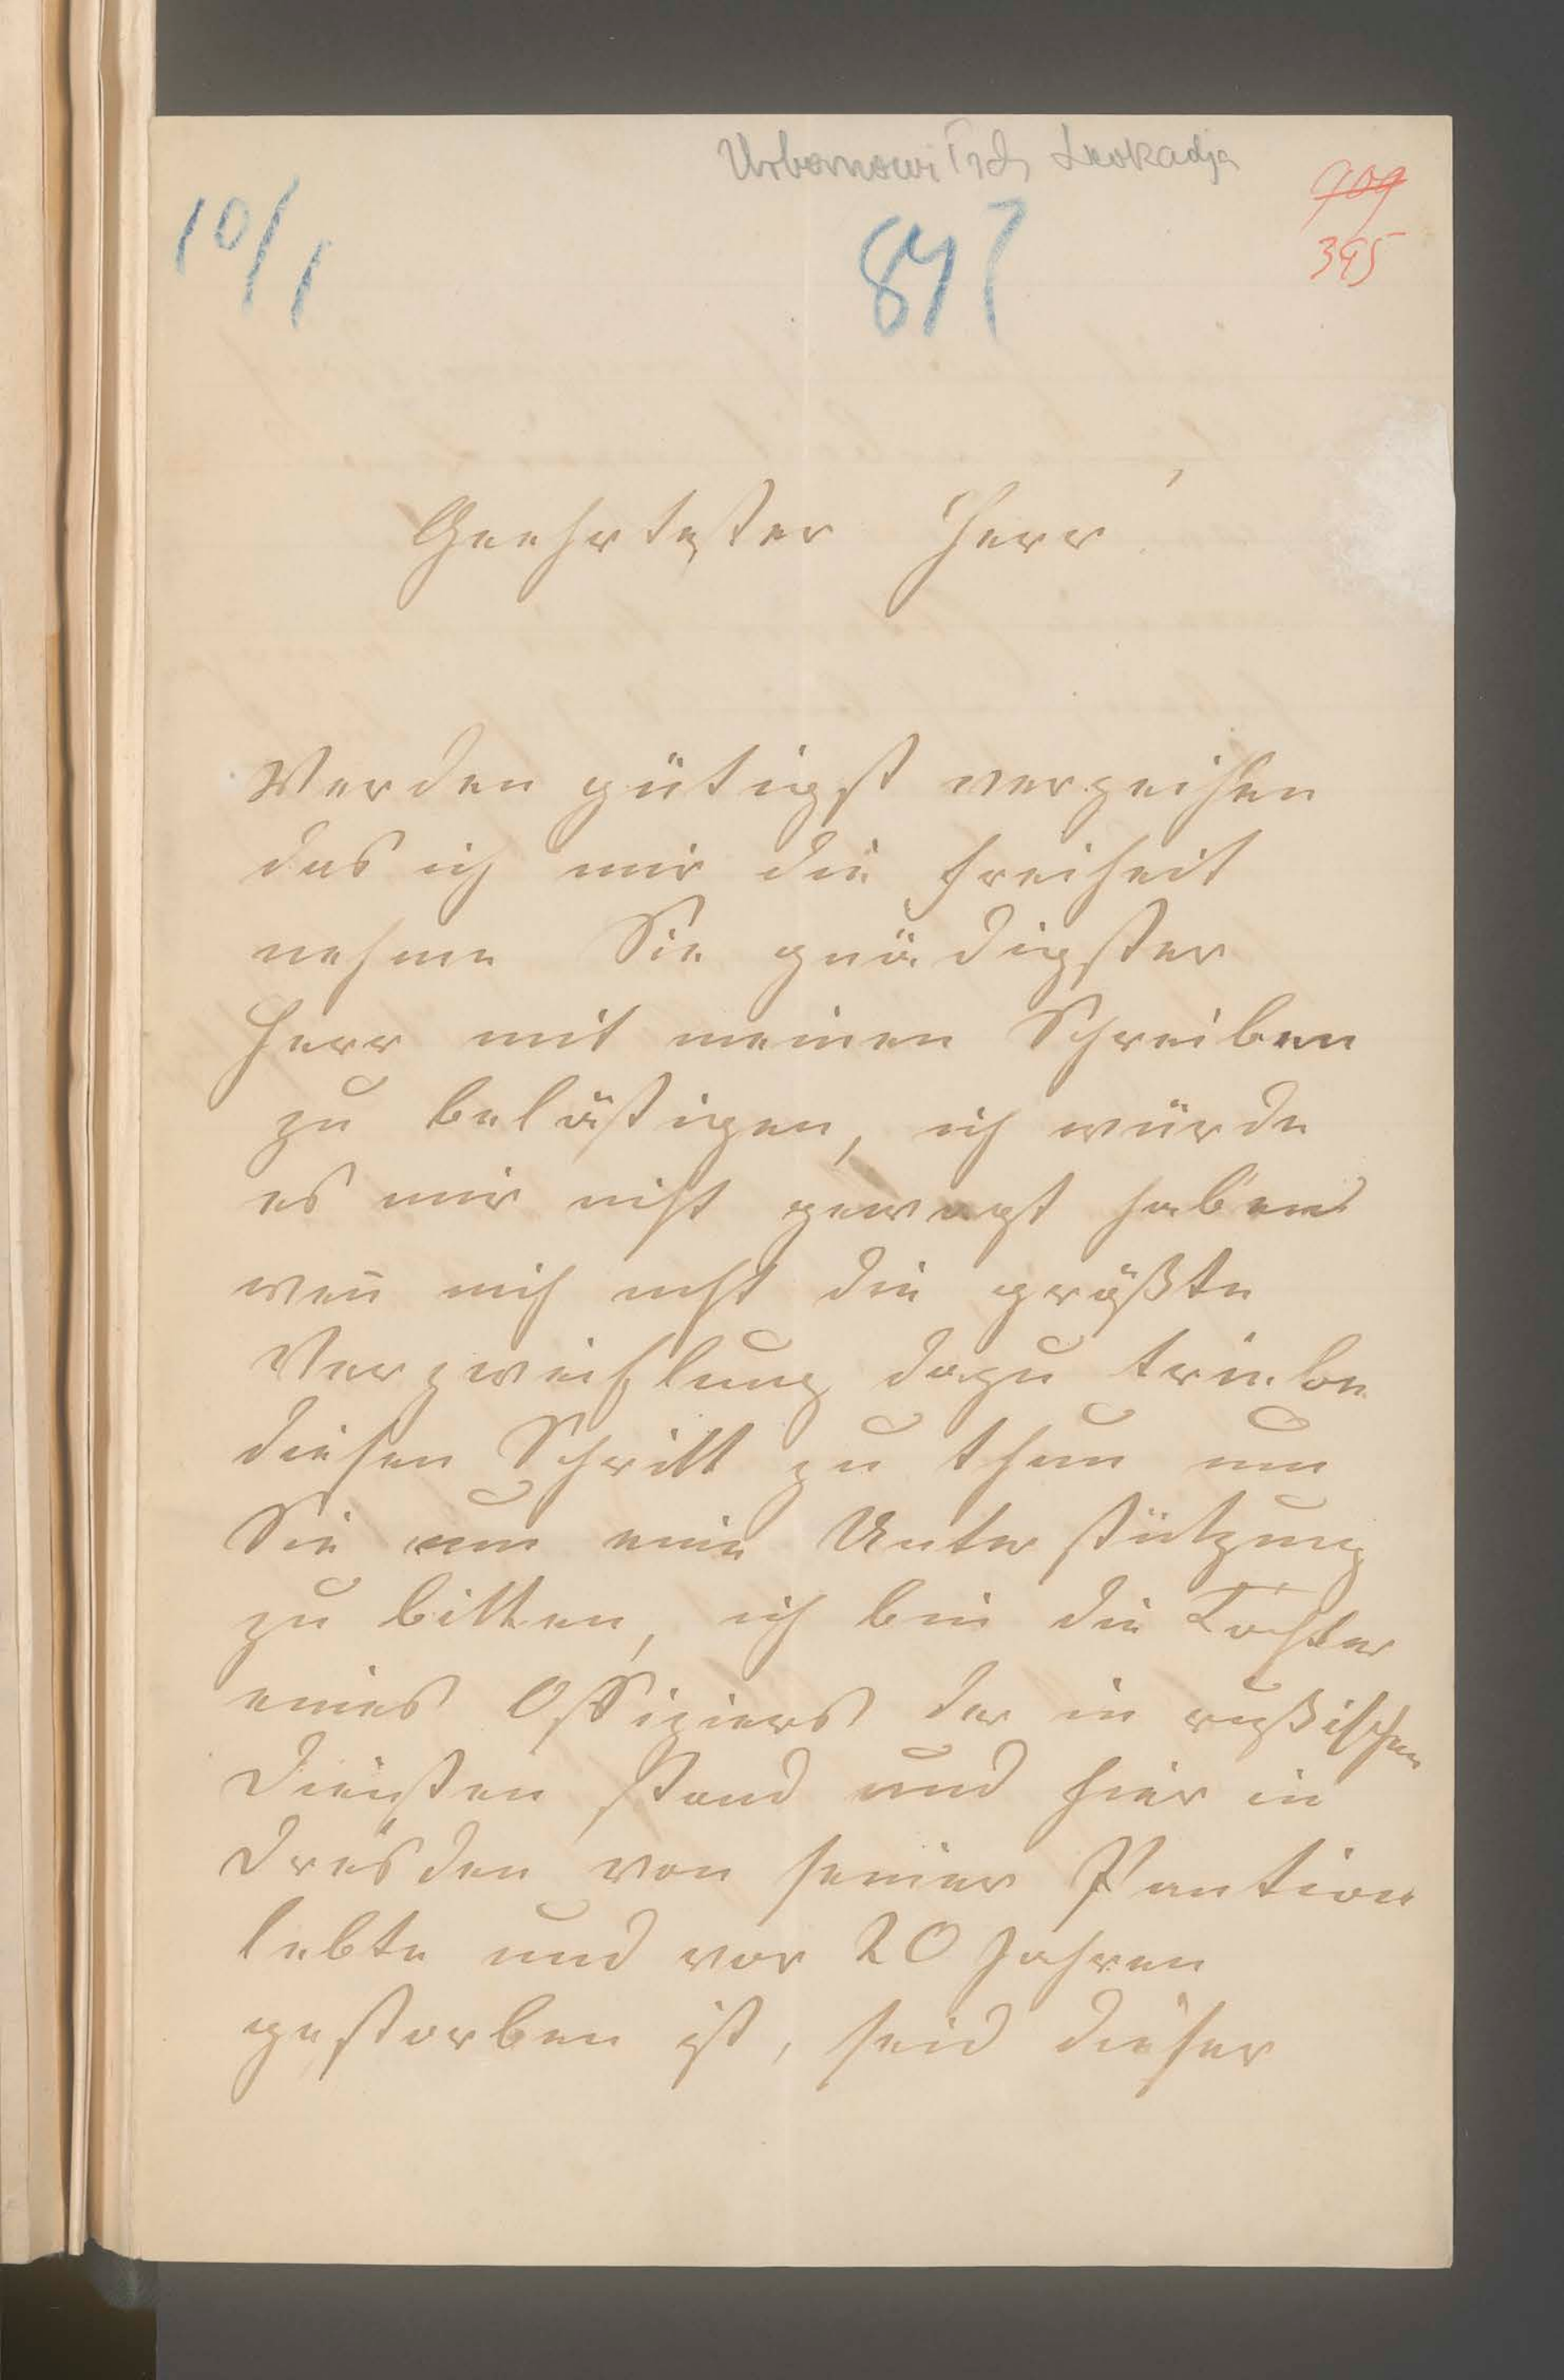 Urbanowitsch Leokadja
909
395
10/1
84?
Geehrtester Herr!
Werden gütigst verzeihen
das ich mir die Freiheit
nehme Sie gnädigster
Herr mit meinen Schreiben
zu belästigen, ich würde
es mir nicht gewagt haben
weñ mich nicht die größte
Verzweiflung dazu triebe
diesen Schritt zu thun um
Sie um eine Unterstützung
zu bitten, ich bin die Tochter
eines Offiziers der in rußischen
Diensten stand und hier in
Dresden von seiner Pantion
lebte und vor 20 Jahren
gestorben ist, seid dieser